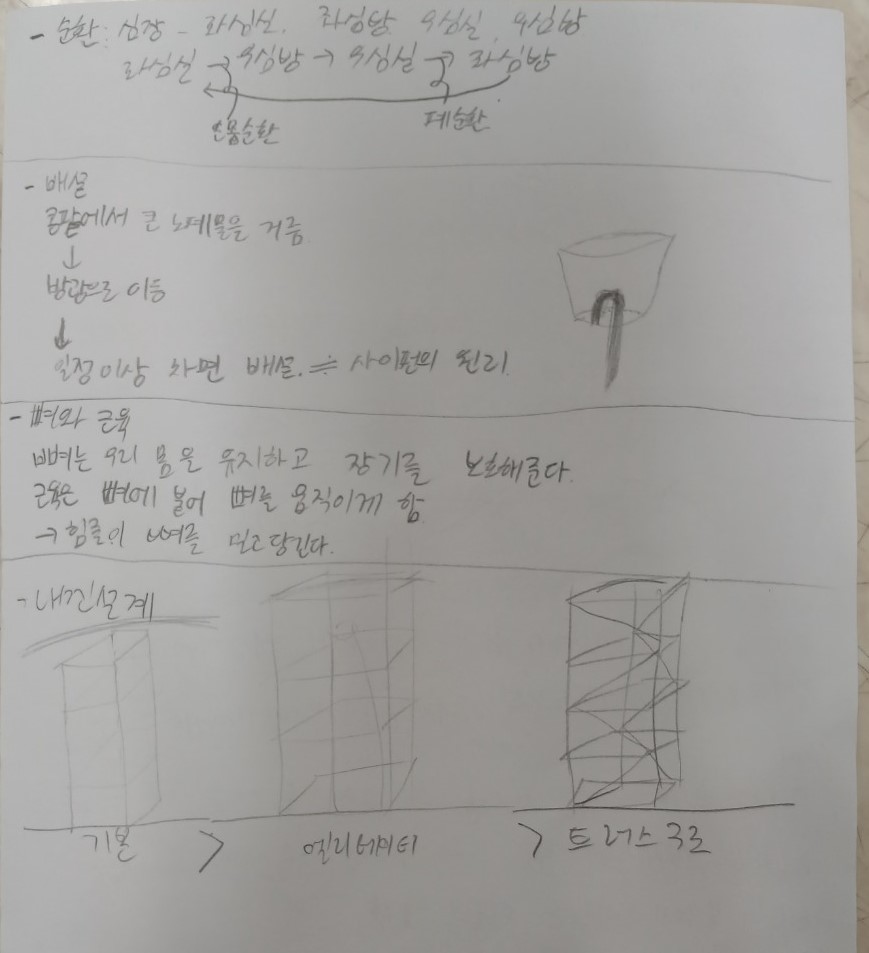 - 순환: 심장 - 좌심실, 좌심방 우심실, 우심방
좌심실 → 우심방 → 우심실 → 좌심방
온몸순환 폐순환
- 배설
콩팥에서 큰 노폐물을 거름
↓
방광으로 이동
↓
일정이상 차면 배설. ≒ 사이펀의 원리
- 뼈와 근육
뼈는 우리 몸을 유지하고 장기를 보호해준다.
근육은 뼈에 붙어 뼈를 움직이게 함
→ 힘줄이 뼈를 밀고당긴다.
- 내진설계
기본 > 엘리베이터 > 트러스 구조